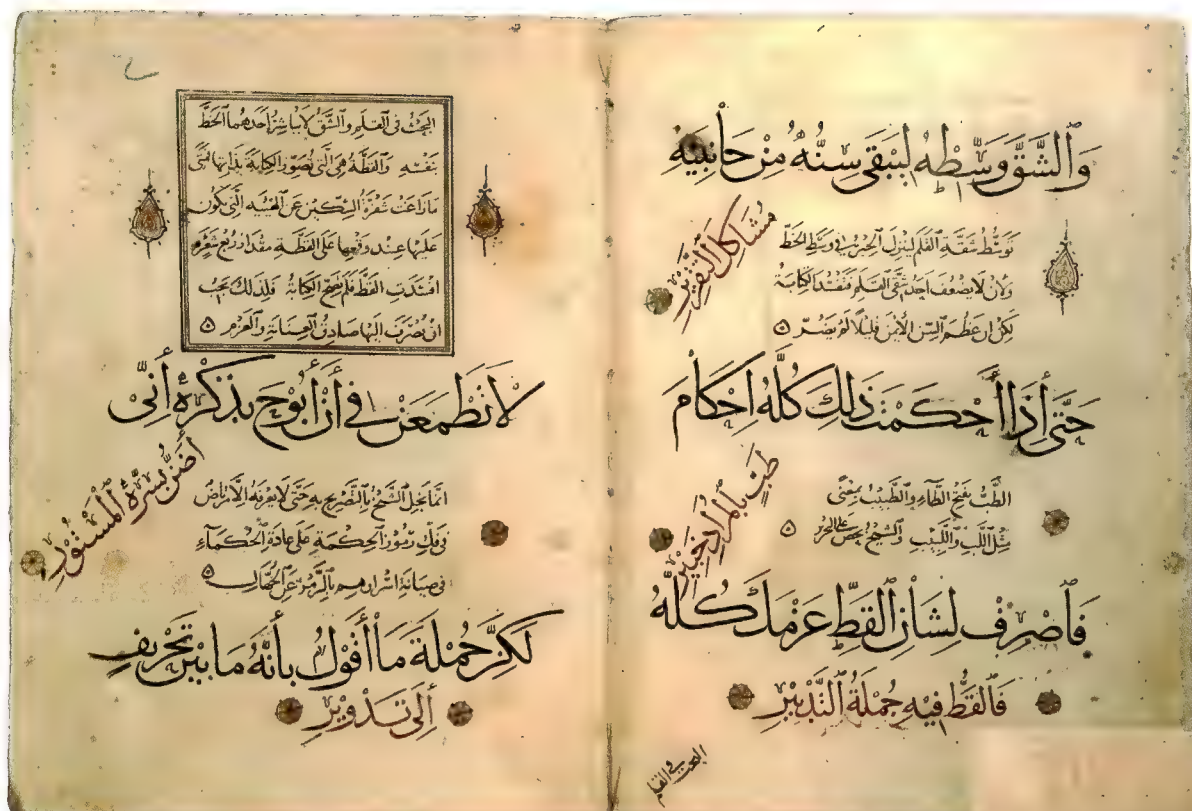 وَالشَّقَّ وَسِّطْهُ لِيَبْقَى سِنُّهُ مِنْ جَانِبَيْهِ
مُشَاكِلَ التَّقْدِيرِ
توسّط شقة القلم لينزل الحبر في وسط الخط
ولأن لا يضعف احد شقي القلم فتفسد الكتابة
لكن ان عظم السن الأيمن قليلا لم يضر
حَتَّى إِذَا أَحْكَمْتَ ذَلِكَ كُلَّهُ إِحْكَامَ
طَبٍّ بِالْمُرَادِ خَبِيرِ
الطب بفتح الطاء والطبيب بمعنى
مثل اللب واللبيب والشيخ يحض على
فَاصْرِفْ لِشَأْنِ الْقَطِّ عَزْمَكَ كُلَّهُ
فَالْقَطُّ فِيهِ جُمْلَةُ التَّدْبِيرِ
البحث في القلم
البحث في القلم والشق لا يباشر احدهما الخط
بنفسه والقطة هي التي تصور الكتابة بذاتها فمتى
ما زاغت شفرة السكين عن الهيئة التي يكون
عليها عند وقعها على القطة مقدار ربع شعرة
افسدت القط فلم تصح الكتابة فلذلك يجب
ان يصرف اليها صادق العناية والعزم
لَا تَطْمَعَنْ فِي أَنْ أَبُوحَ بِذِكْرِهِ إِنِّي
أَضِنُّ بِسِرِّهِ الْمَسْتُورِ
انما بخل الشيخ بالتصريح به حتى لا يعرفه الا مرتاض
في فك رموز الحكمة على عادة الحكماء
في صيانة اسرارهم بالرمز عن الجهال
لَكِنَّ جُمْلَةَ مَا أَقُولُ بِأَنَّهُ مَا بَيْنَ تَحْرِيفٍ
إِلَى تَدْوِيرِ